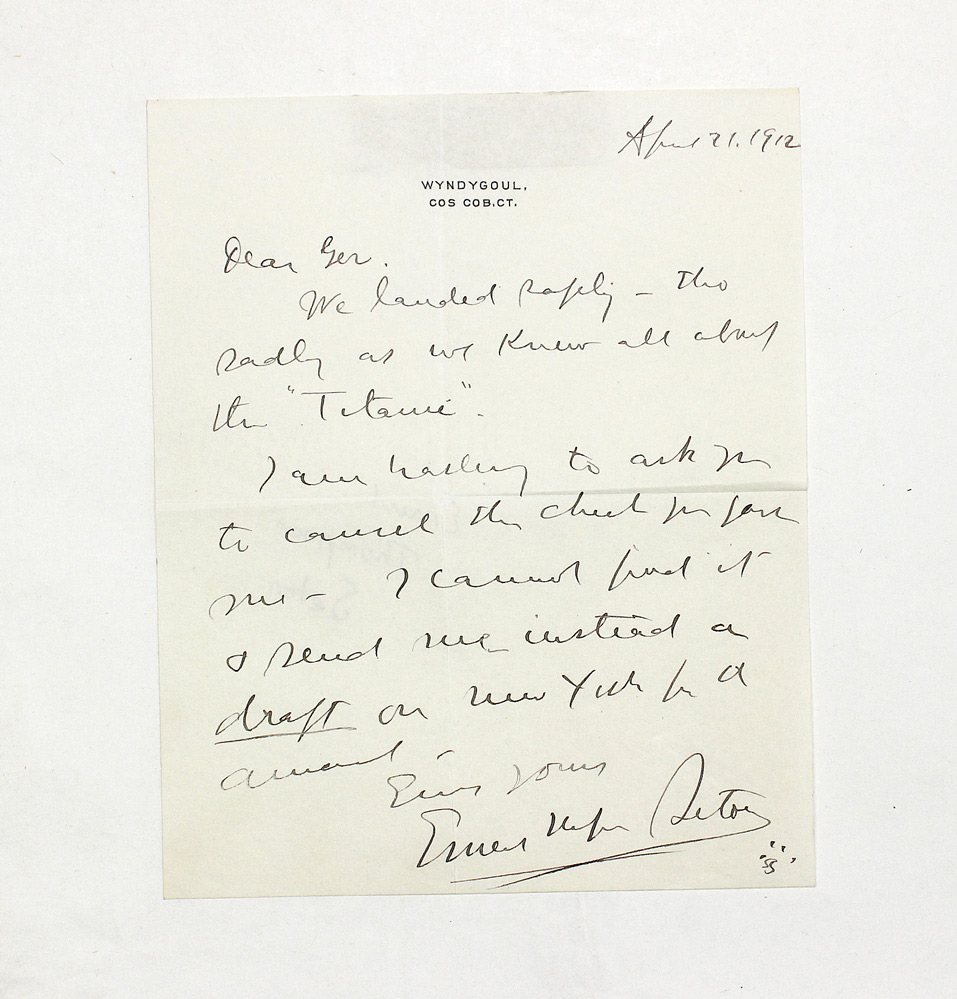 April 21. 1912
WYNDYGOUL,
COS COB, CT.
Dear
We landed safely - tho
sadly as we knew all about
the "Titanic".
I am to ask you
to cancel the check you gave
me - I cannot find it
& send me instead a
draft on New York for
amount -
Ever yours
Ernest Thompson Seton